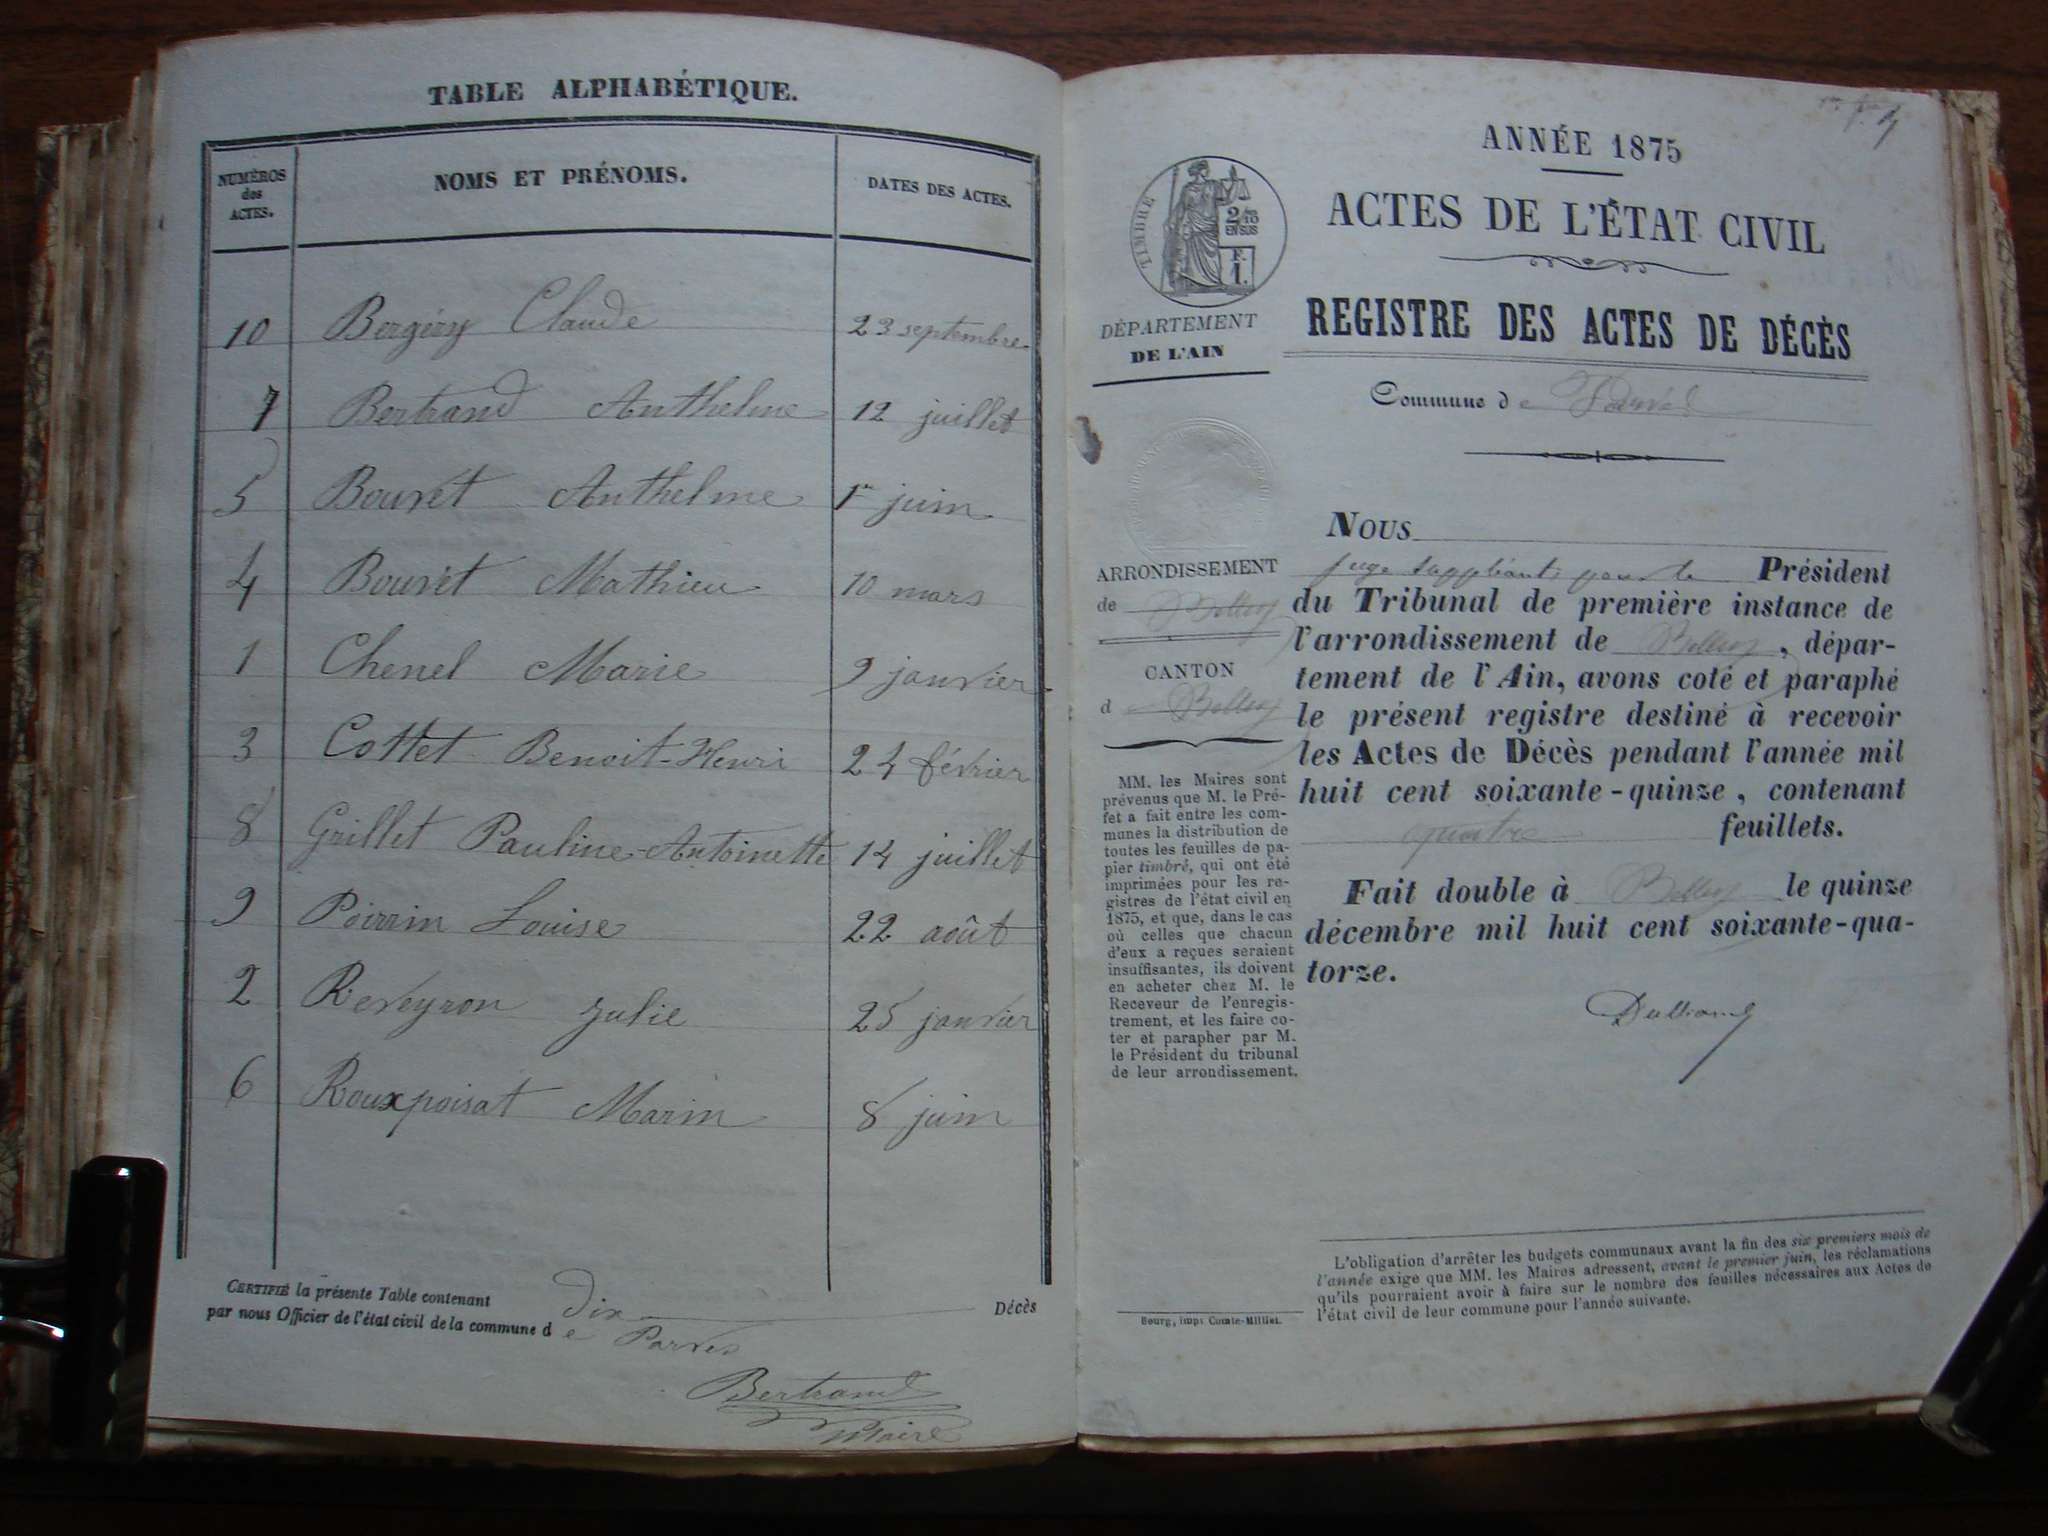 TABLE ALPHABÉTIQUE.
NUMÉROS des ACTES. NOMS ET PRÉNOMS. DATES DES ACTES.
10 Bergéry Claude 23 septembre
7 Bertrand Anthelme 12 juillet
5 Bouvet Anthelme 1er juin
4 Bouvet Mathieu 10 mars
1 Chenel Marie 9 janvier
3 Cottet Benoit-Henri 24 février
8 Grillet Pauline-Antoinette 14 juillet
9 Poirrin Louise 22 août
2 Reveyron Julie 25 janvier
6 Rouxpoisat Marin 8 juin
CERTIFIÉ la présente Table contenant dix Décès
par nous Officier de l'état civil de la commune de Parves
Bertrand
Maire
ANNÉE 1875
ACTES DE L'ÉTAT CIVIL
TIMBRE
2/10
EN SUS
F.
1.
DÉPARTEMENT
DE L'AIN
REGISTRE DES ACTES DE DÉCÈS
Commune de Parves
ARRONDISSEMENT
de Belley
CANTON
de Belley
MM. les Maires sont
prévenus que M. le Pré-
fet a fait entre les com-
munes la distribution de
toutes les feuilles de pa-
pier timbré, qui ont été
imprimées pour les re-
gistres de l'état civil en
1875, et que, dans le cas
où celles que chacun
d'eux a reçues seraient
insuffisantes, ils doivent
en acheter chez M. le
Receveur de l'enregis-
trement, et les faire co-
ter et parapher par M.
le Président du tribunal
de leur arrondissement.
NOUS
juge suppléant, pour le Président
du Tribunal de première instance de
l'arrondissement de Belley, dépar-
tement de l'Ain, avons coté et paraphé
le présent registre destiné à recevoir
les Actes de Décès pendant l'année mil
huit cent soixante-quinze, contenant
quatre feuillets.
Fait double à Belley le quinze
décembre mil huit cent soixante-qua-
torze.
L'obligation d'arrêter les budgets communaux avant la fin des six premiers mois de
l'année exige que MM. les Maires adressent, avant le premier juin, les réclamations
qu'ils pourraient avoir à faire sur le nombre des feuilles nécessaires aux Actes de
l'état civil de leur commune pour l'année suivante.
Bourg, imp. Comte-Milliet.